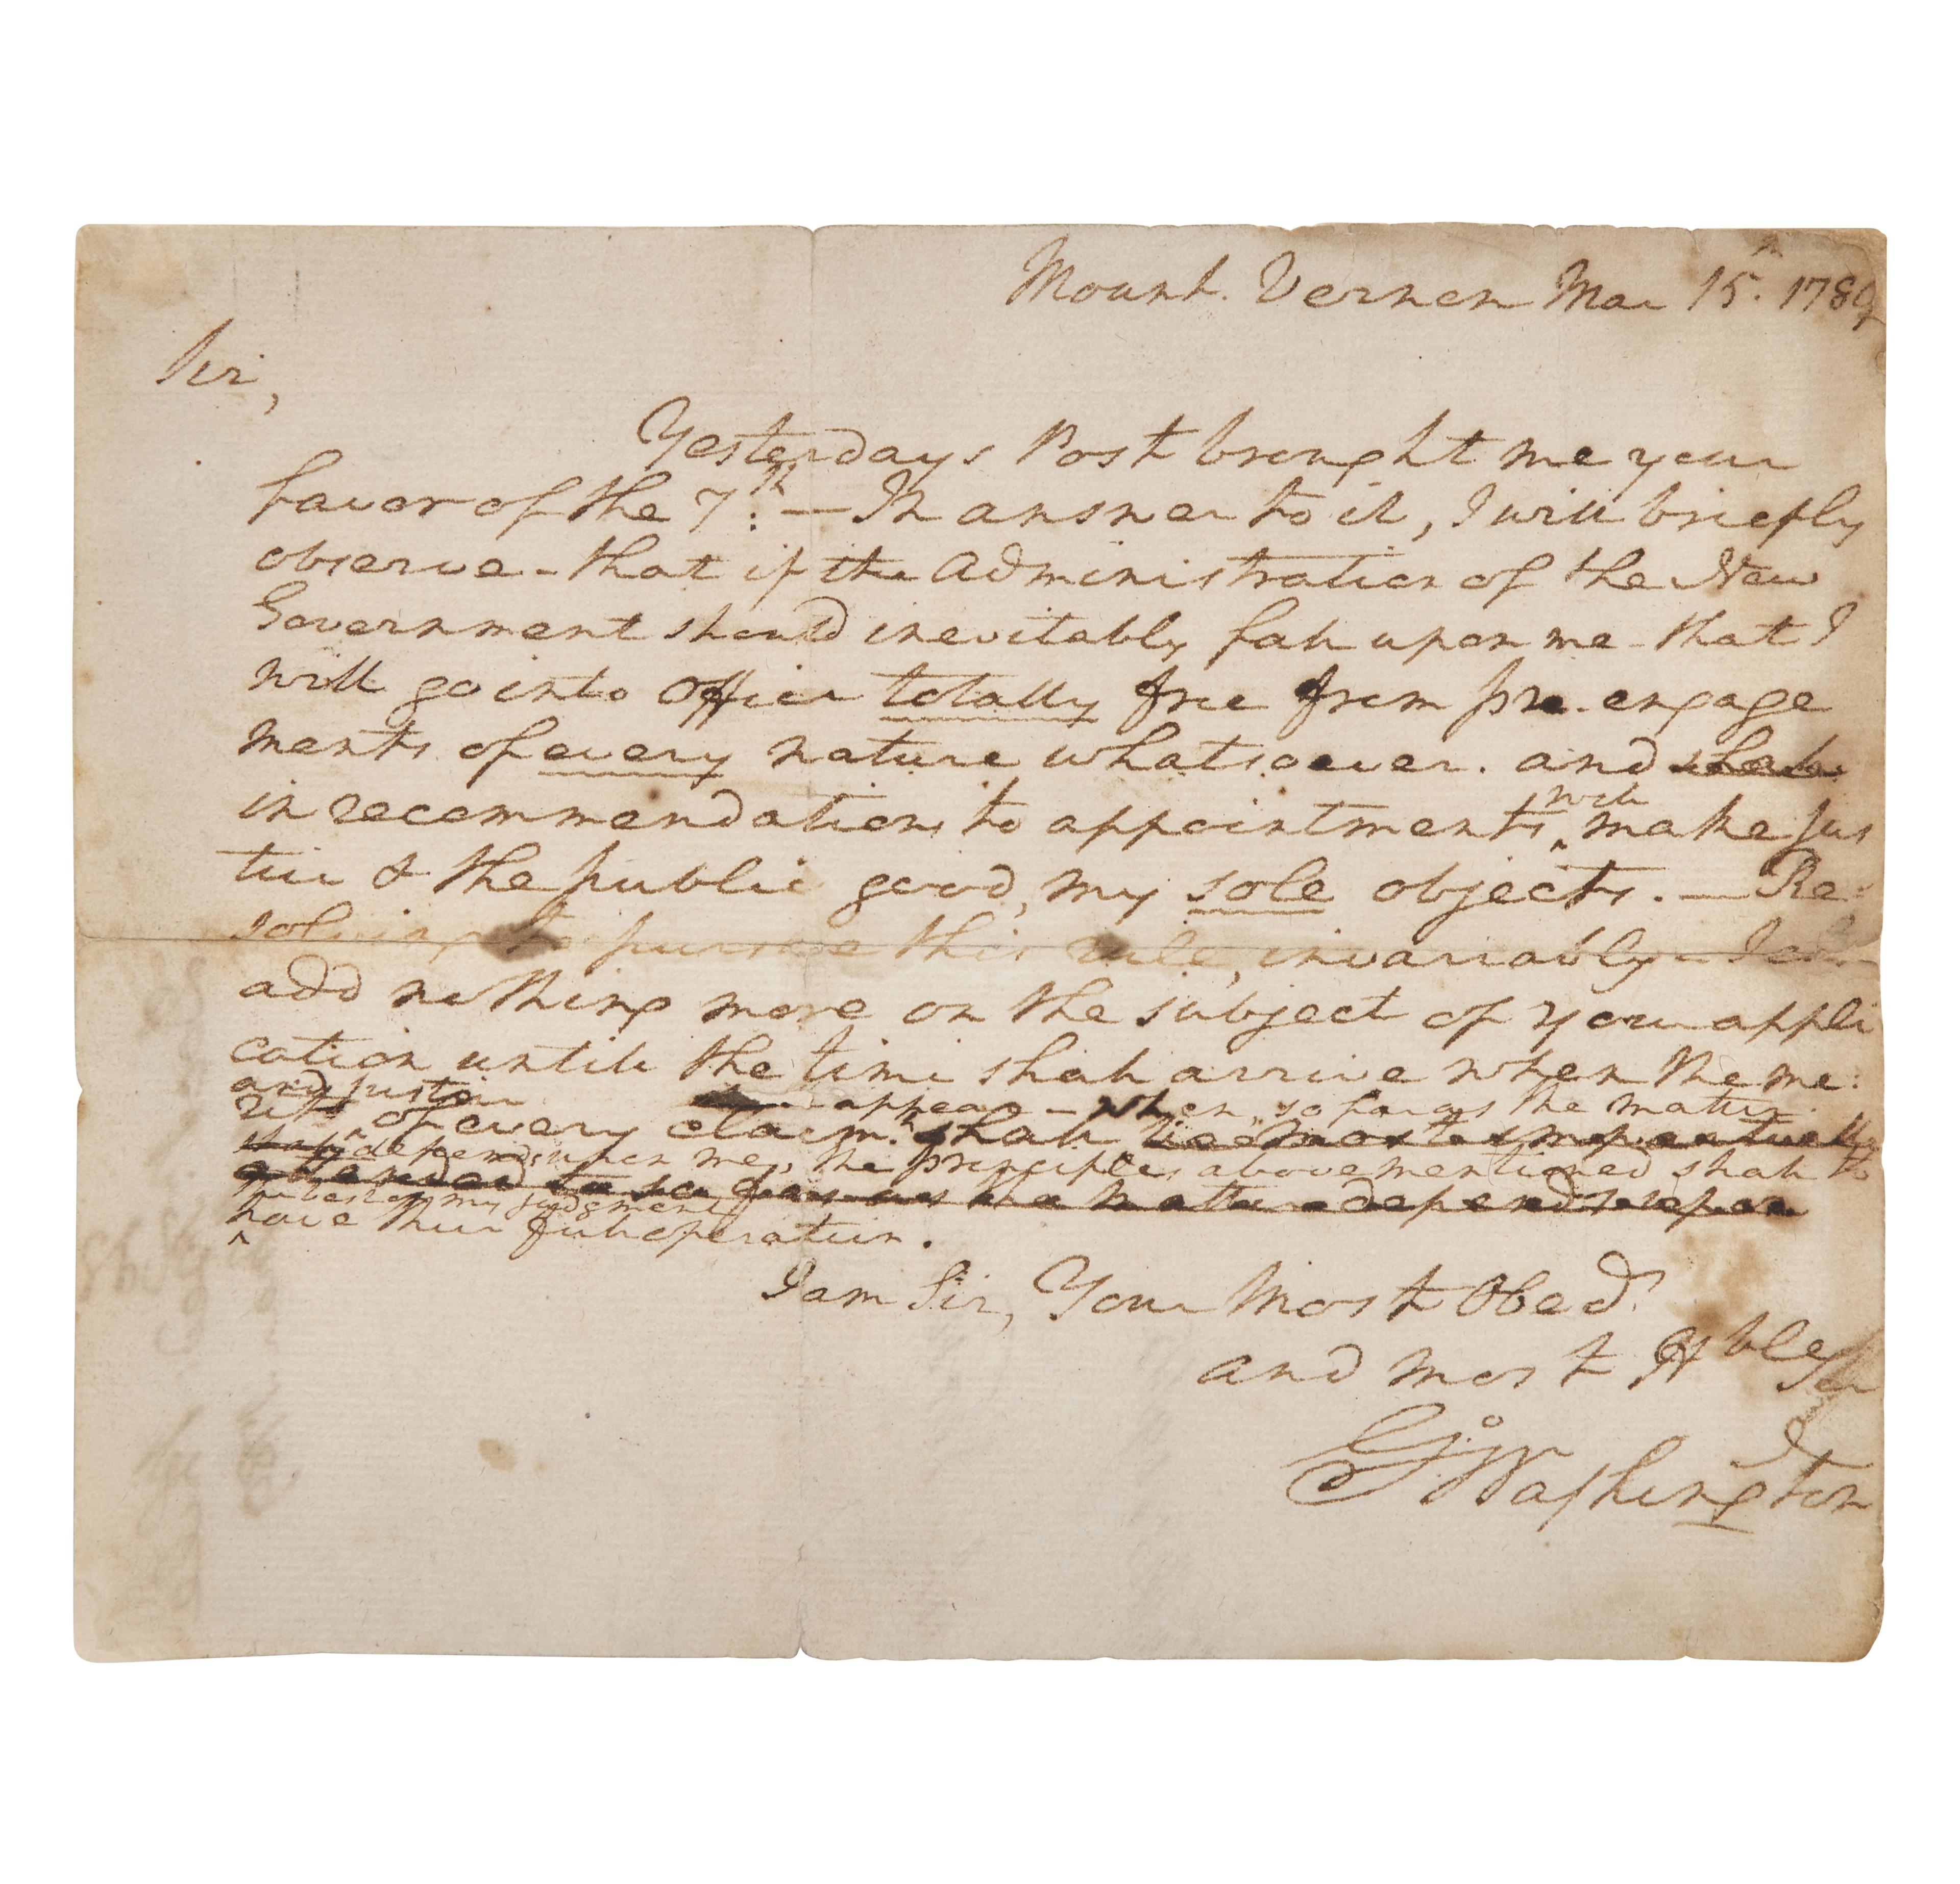 Mount Vernon Mar 15th. 1789
Sir,
Yesterdays Post brought me your
favor of the 7th: — In answer to it, I will briefly
observe - that if the Administration of the New
Government should inevitably fall upon me - that I
will go into Office totally free from pre-engage
ments of every nature whatsoever. and shall
in recommendations to appointments, will make jus
tice & the public good, my sole objects. — Re-
solving to pursue this rule, invariably - I
add nothing more on the subject of your appli
cation until the time shall arrive when the me:
and justice appear - when, so far as the matter
rits of every claim shall be most
depends upon me, the principles abovementioned shall to
attended to so far as the matter depends upon
the best of my judgment
have their full operation.
I am Sir, Your Most Obedt
and most Hble Ser
Go: Washington